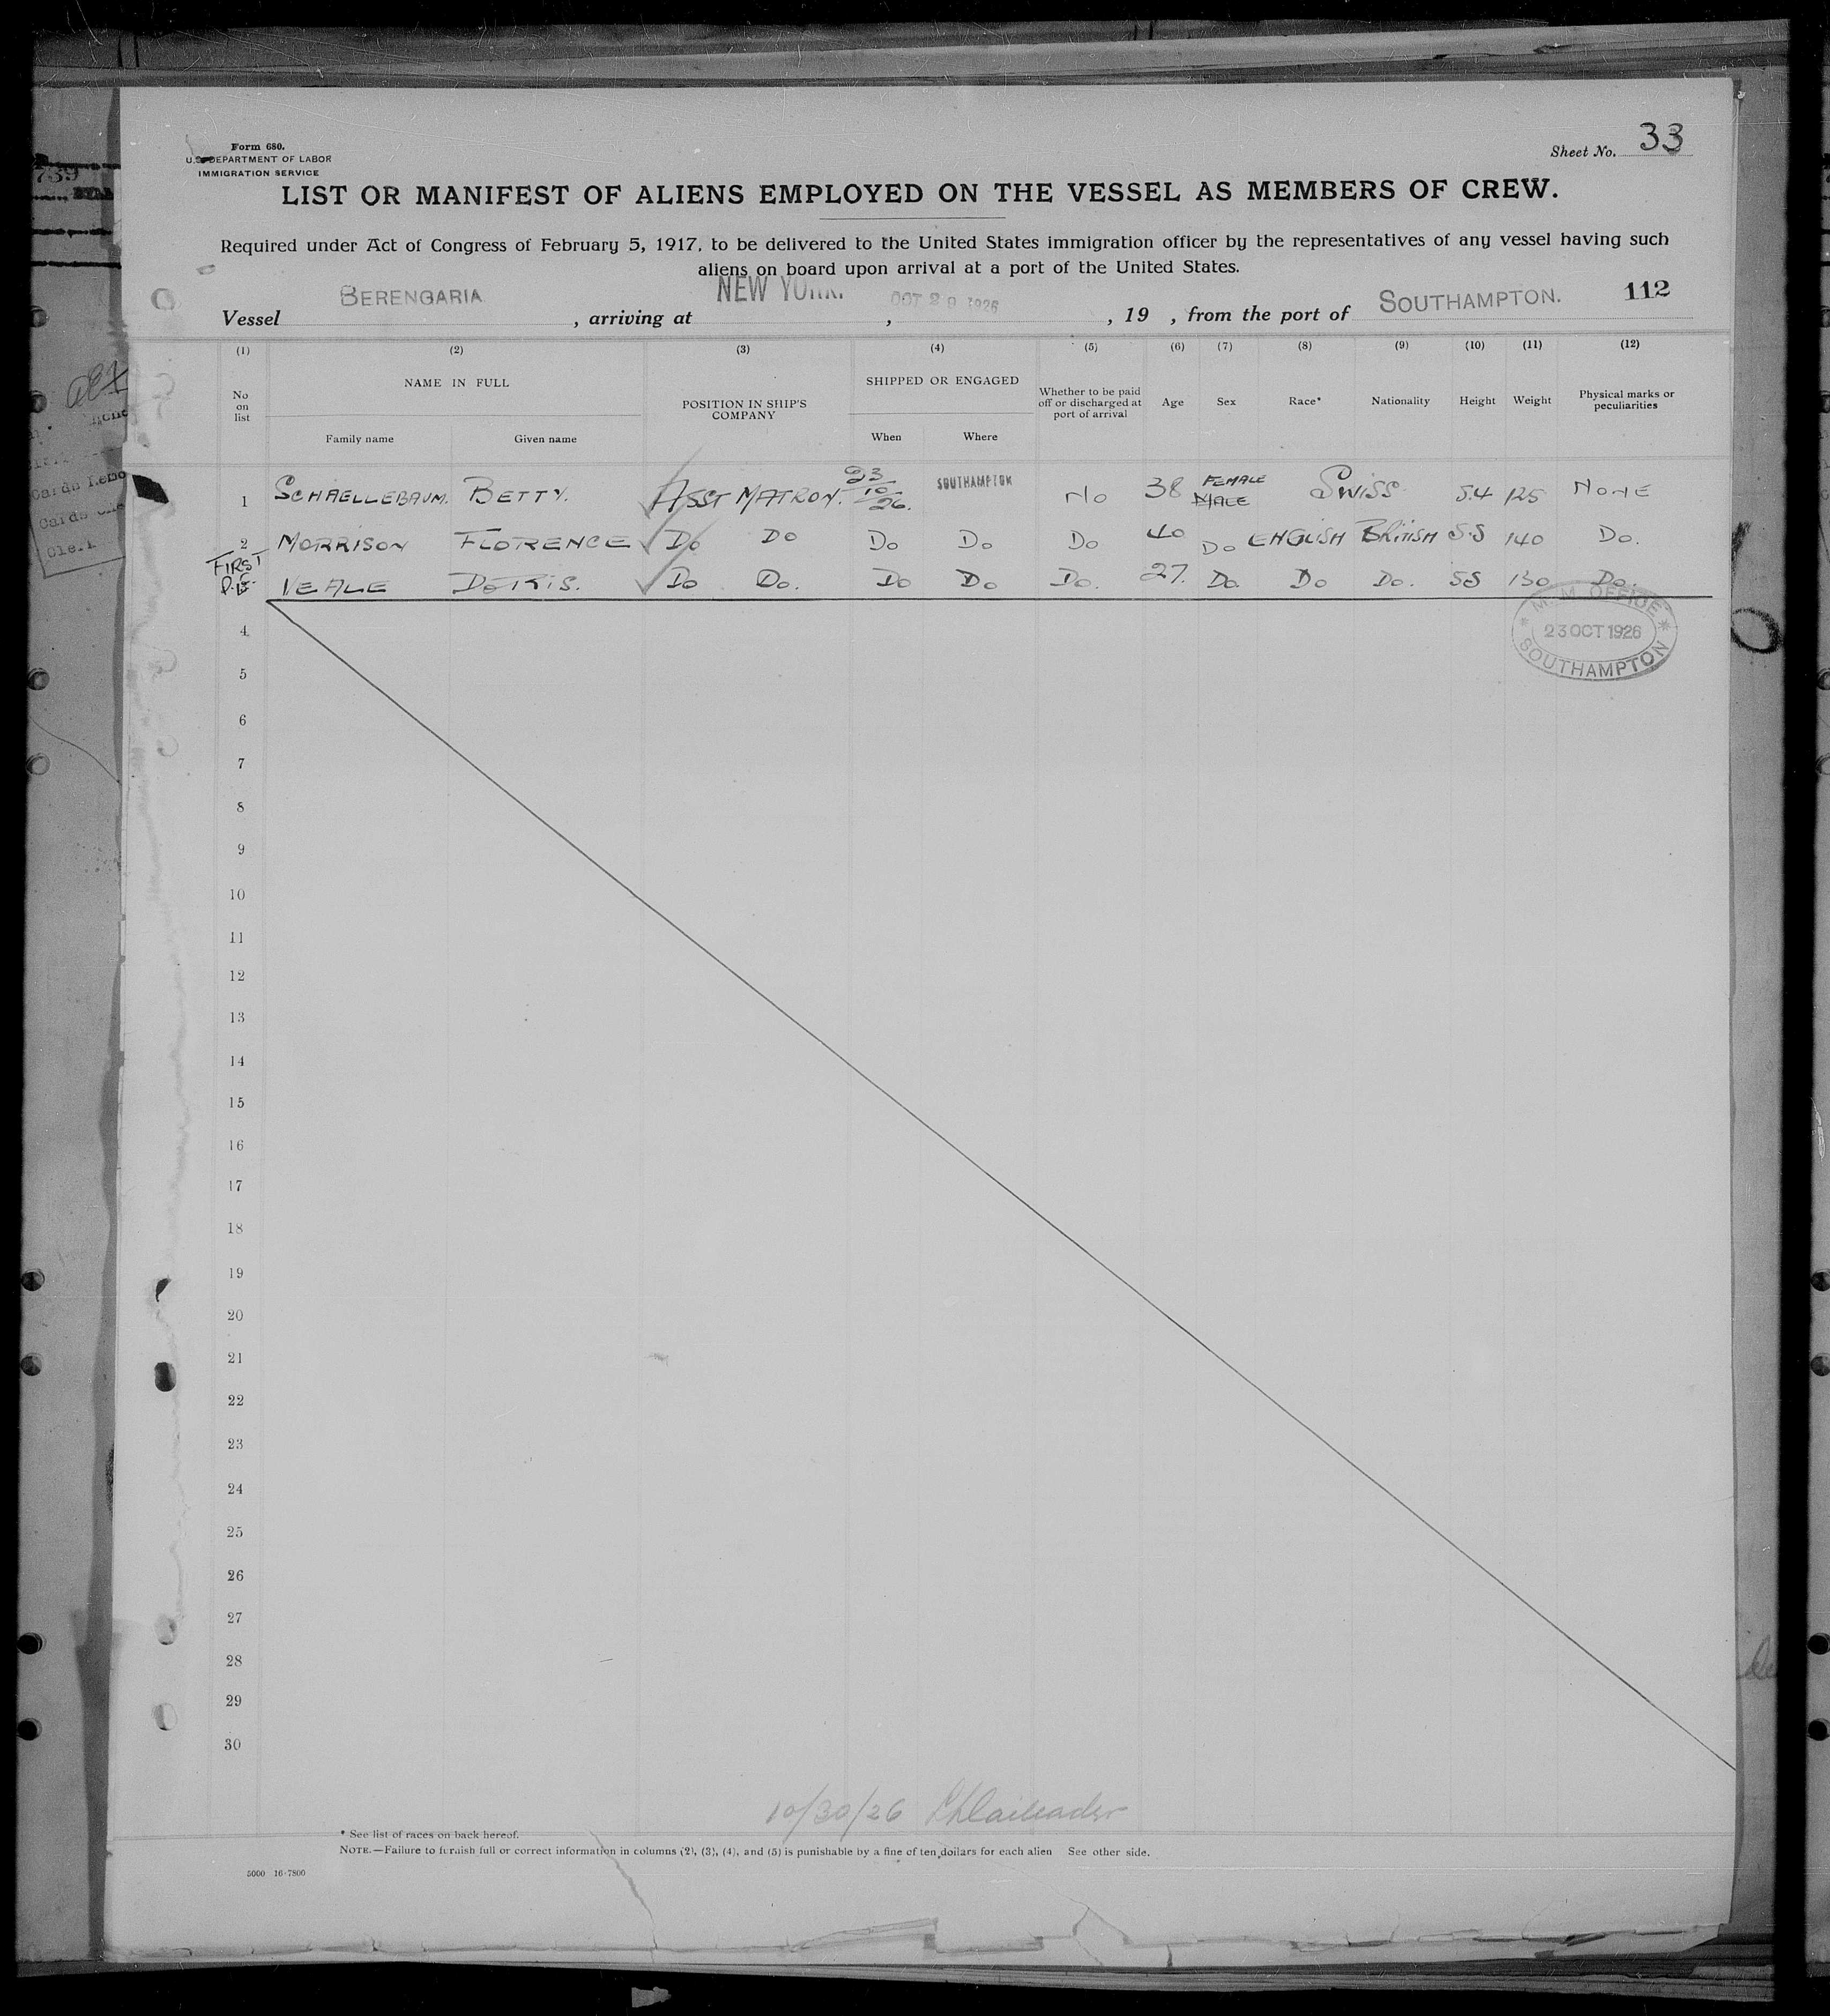 Form 680.
U.S. DEPARTMENT OF LABOR
IMMIGRATION SERVICE
Sheet No. 33
LIST OR MANIFEST OF ALIENS EMPLOYED ON THE VESSEL AS MEMBERS OF CREW.
Required under Act of Congress of February 5, 1917, to be delivered to the United States immigration officer by the representatives of any vessel having such
aliens on board upon arrival at a port of the United States.
Vessel BERENGARIA, arriving at NEW YORK, OCT 29 1926, 19 , from the port of SOUTHAMPTON. 112
(1) (2) (3) (4) (5) (6) (7) (8) (9) (10) (11) (12)
No on list NAME IN FULL POSITION IN SHIP'S COMPANY SHIPPED OR ENGAGED Whether to be paid off or discharged at port of arrival Age Sex Race* Nationality Height Weight Physical marks or peculiarities
Family name Given name When Where
1 SCHAELLEBAUM. BETTY. ASST MATRON. 23/10/26. SOUTHAMPTON No 38 FEMALE MALE SWISS 5.4 125 NONE
2 MORRISON FLORENCE Do Do Do Do Do 40 Do ENGLISH BRITISH 5.5 140 Do.
FIRST
VEALE DORIS. Do Do. Do Do Do. 27. Do. Do Do. 55 130 Do.
M.M. OFFICE
23 OCT 1926
SOUTHAMPTON
4
5
6
7
8
9
10
11
12
13
14
15
16
17
18
19
20
21
22
23
24
25
26
27
28
29
30
10/30/26
* See list of races on back hereof.
NOTE.—Failure to furnish full or correct information in columns (2), (3), (4), and (5) is punishable by a fine of ten dollars for each alien See other side.
5000 16-7800